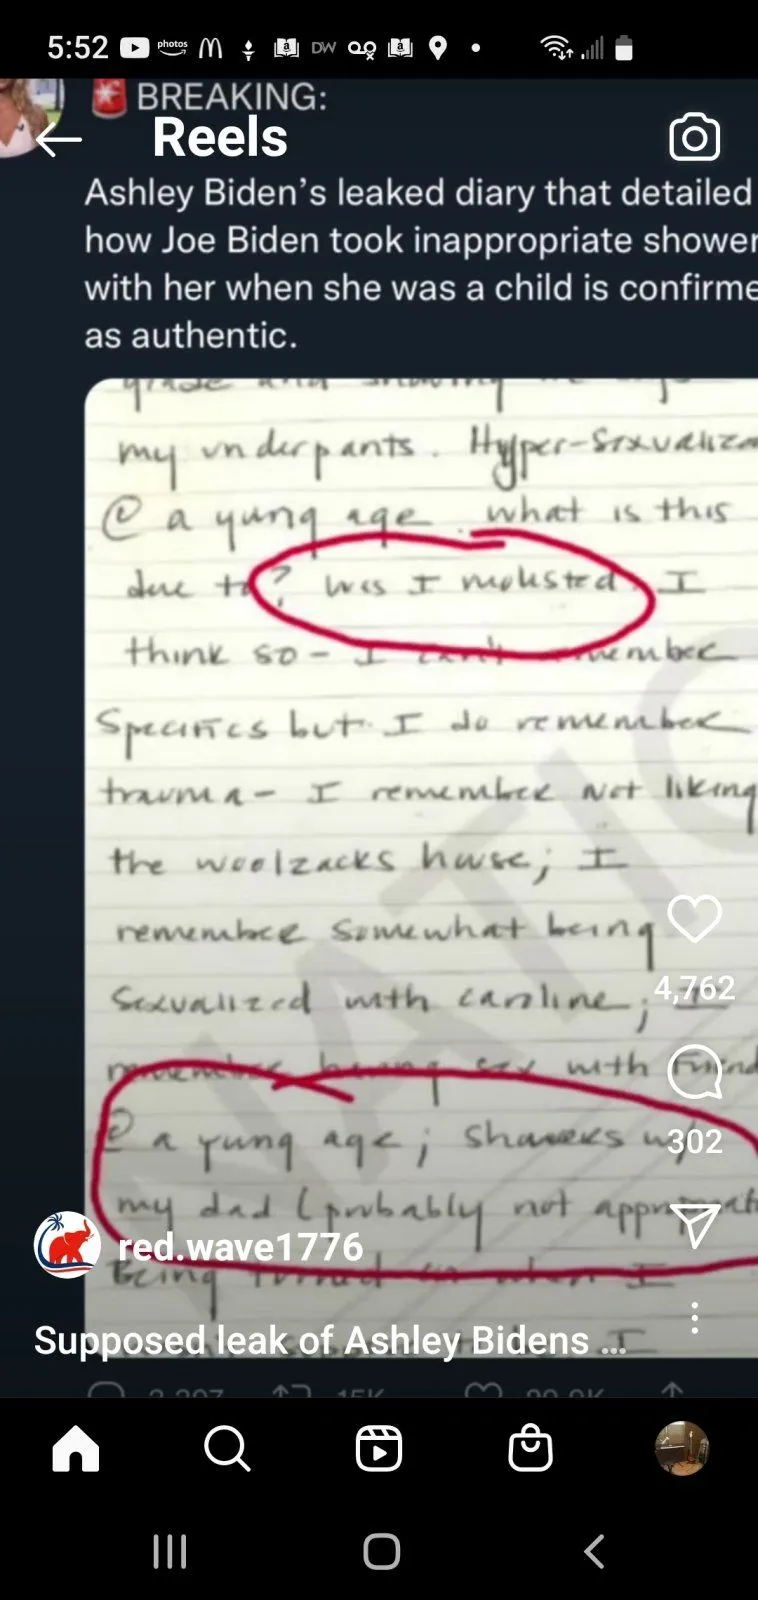 5:52 photos DW
BREAKING:
Reels
Ashley Biden's leaked diary that detailed
how Joe Biden took inappropriate shower
with her when she was a child is confirme
as authentic.
my underpants. Hyper-Sexualiza
@ a yung age what is this
due to? was I molested. I
think so - I can't remember
Specifics but I do remember
trauma - I remember not liking
the woolzacks house; I
remember somewhat being
Sexualized with caroline; I
4,762
remember having sex with friend
@ a yung age; showers w/
302
my dad (probably not appropriat
red.wave1776
Being turned on when I
Supposed leak of Ashley Bidens ... I
15K